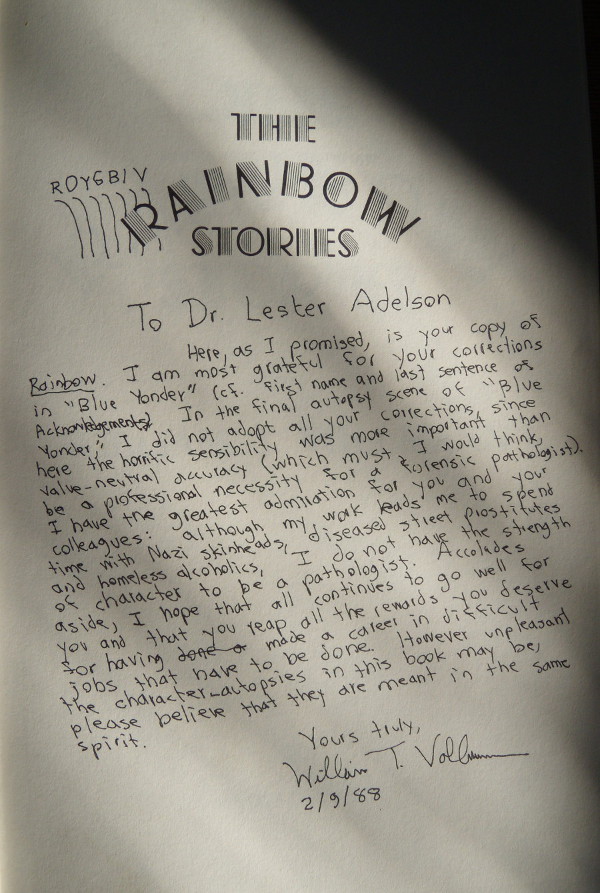 THE
ROYGBIV
RAINBOW
STORIES
To Dr. Lester Adelson
Here, as I promised, is your copy of
Rainbow. I am most grateful for your corrections
in "Blue Yonder" (cf. first name and last sentence of
Acknowledgements). In the final autopsy scene of "Blue
Yonder," I did not adopt all your corrections, since
here the horrific sensibility was more important than
value-neutral accuracy (which must, I would think,
be a professional necessity for a forensic pathologist).
I have the greatest admiration for you and your
colleagues: although my work leads me to spend
time with Nazi skinheads, diseased street prostitutes
and homeless alcoholics, I do not have the strength
of character to be a pathologist. Accolades
aside, I hope that all continues to go well for
you and that you reap all the rewards you deserve
for having done or made a career in difficult
jobs that have to be done. However unpleasant
the character-autopsies in this book may be,
please believe that they are meant in the same
spirit.
Yours truly,
William T. Vollmann
2/9/88